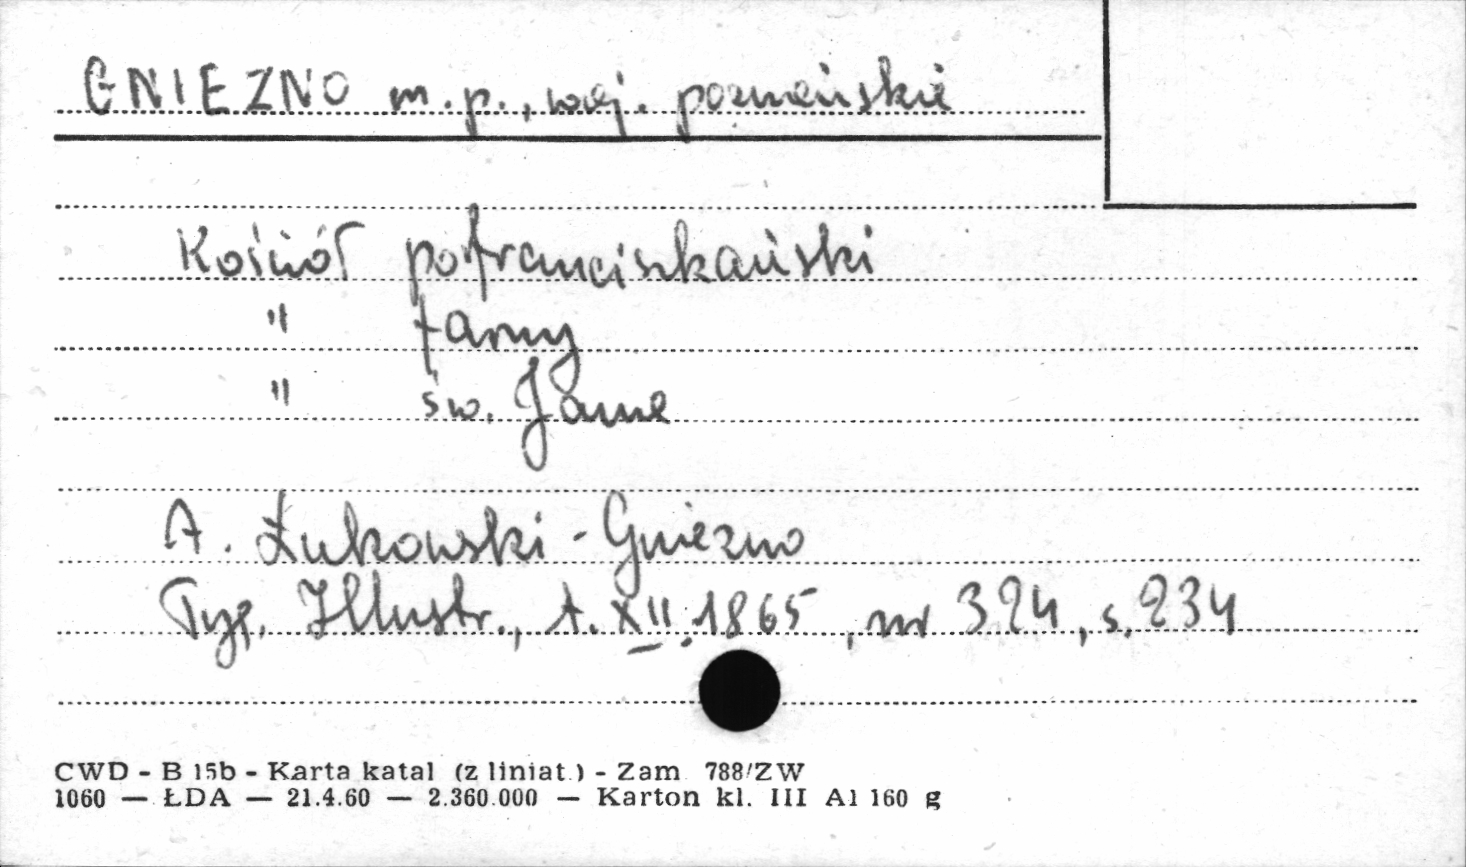 GNIEZNO m. p., woj. poznańskie
Kościół pofranciszkański
" farny
" św. Jana
A. Łukowski - Gniezno
Tyg. Illustr., t. XII. 1865, nr 324, s. 234
CWD - B 15b - Karta katal (z liniat.) - Zam 788/ZW
1060 — ŁDA — 21.4.60 — 2.360.000 — Karton kl. III A1 160 g